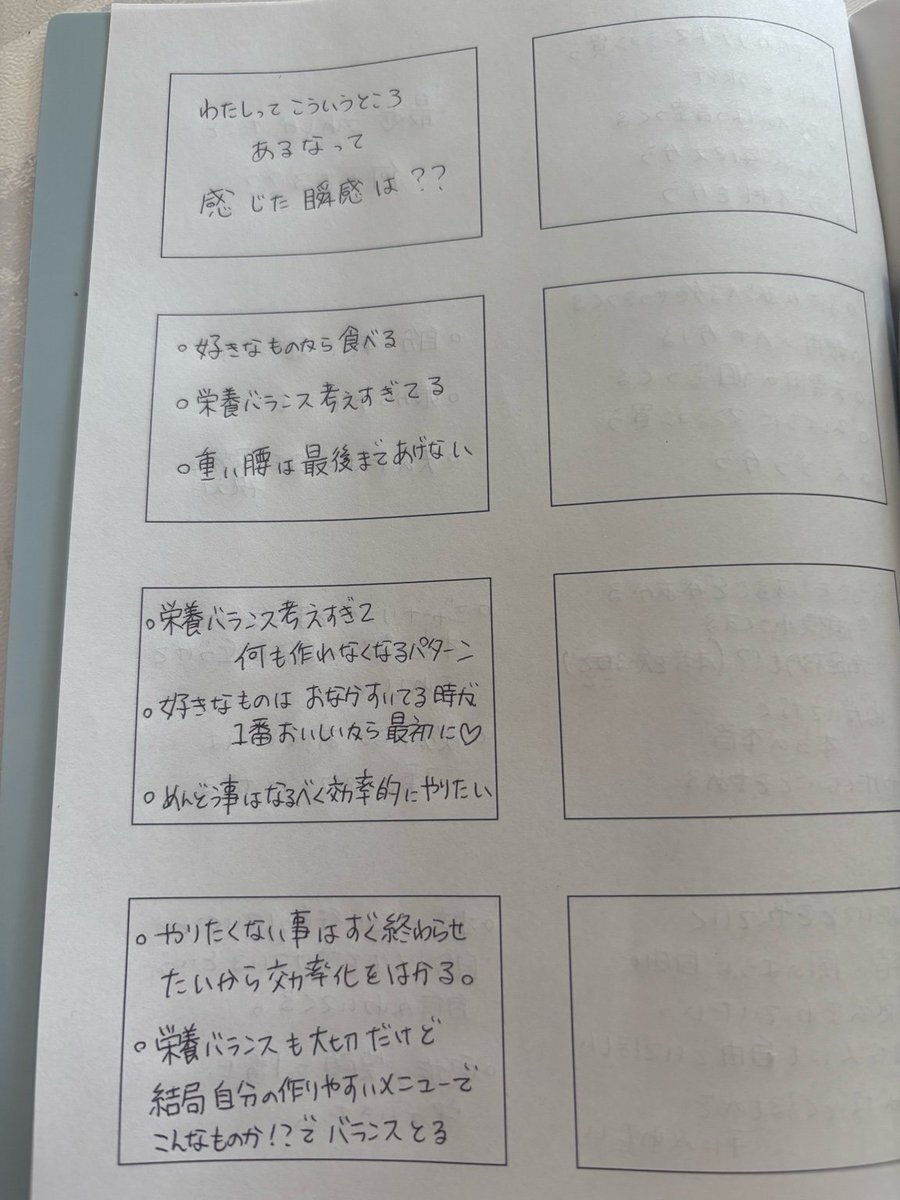 わたしって こういうところ
あるなって
感じた 瞬感 は??
○好きなものから 食べる
○栄養バランス 考えすぎてる
○重い腰は最後まであげない
○栄養バランス考えすぎて
何も作れなくなるパターン
○好きなものは おなかすいてる時が
1番おいしいから 最初に♡
○めんどう事はなるべく効率的にやりたい
○やりたくない事はすぐ終わらせ
たいから 効率化をはかる。
○栄養バランスも大切だけど
結局自分の作りやすいメニューで
こんなものか!?で バランスとる